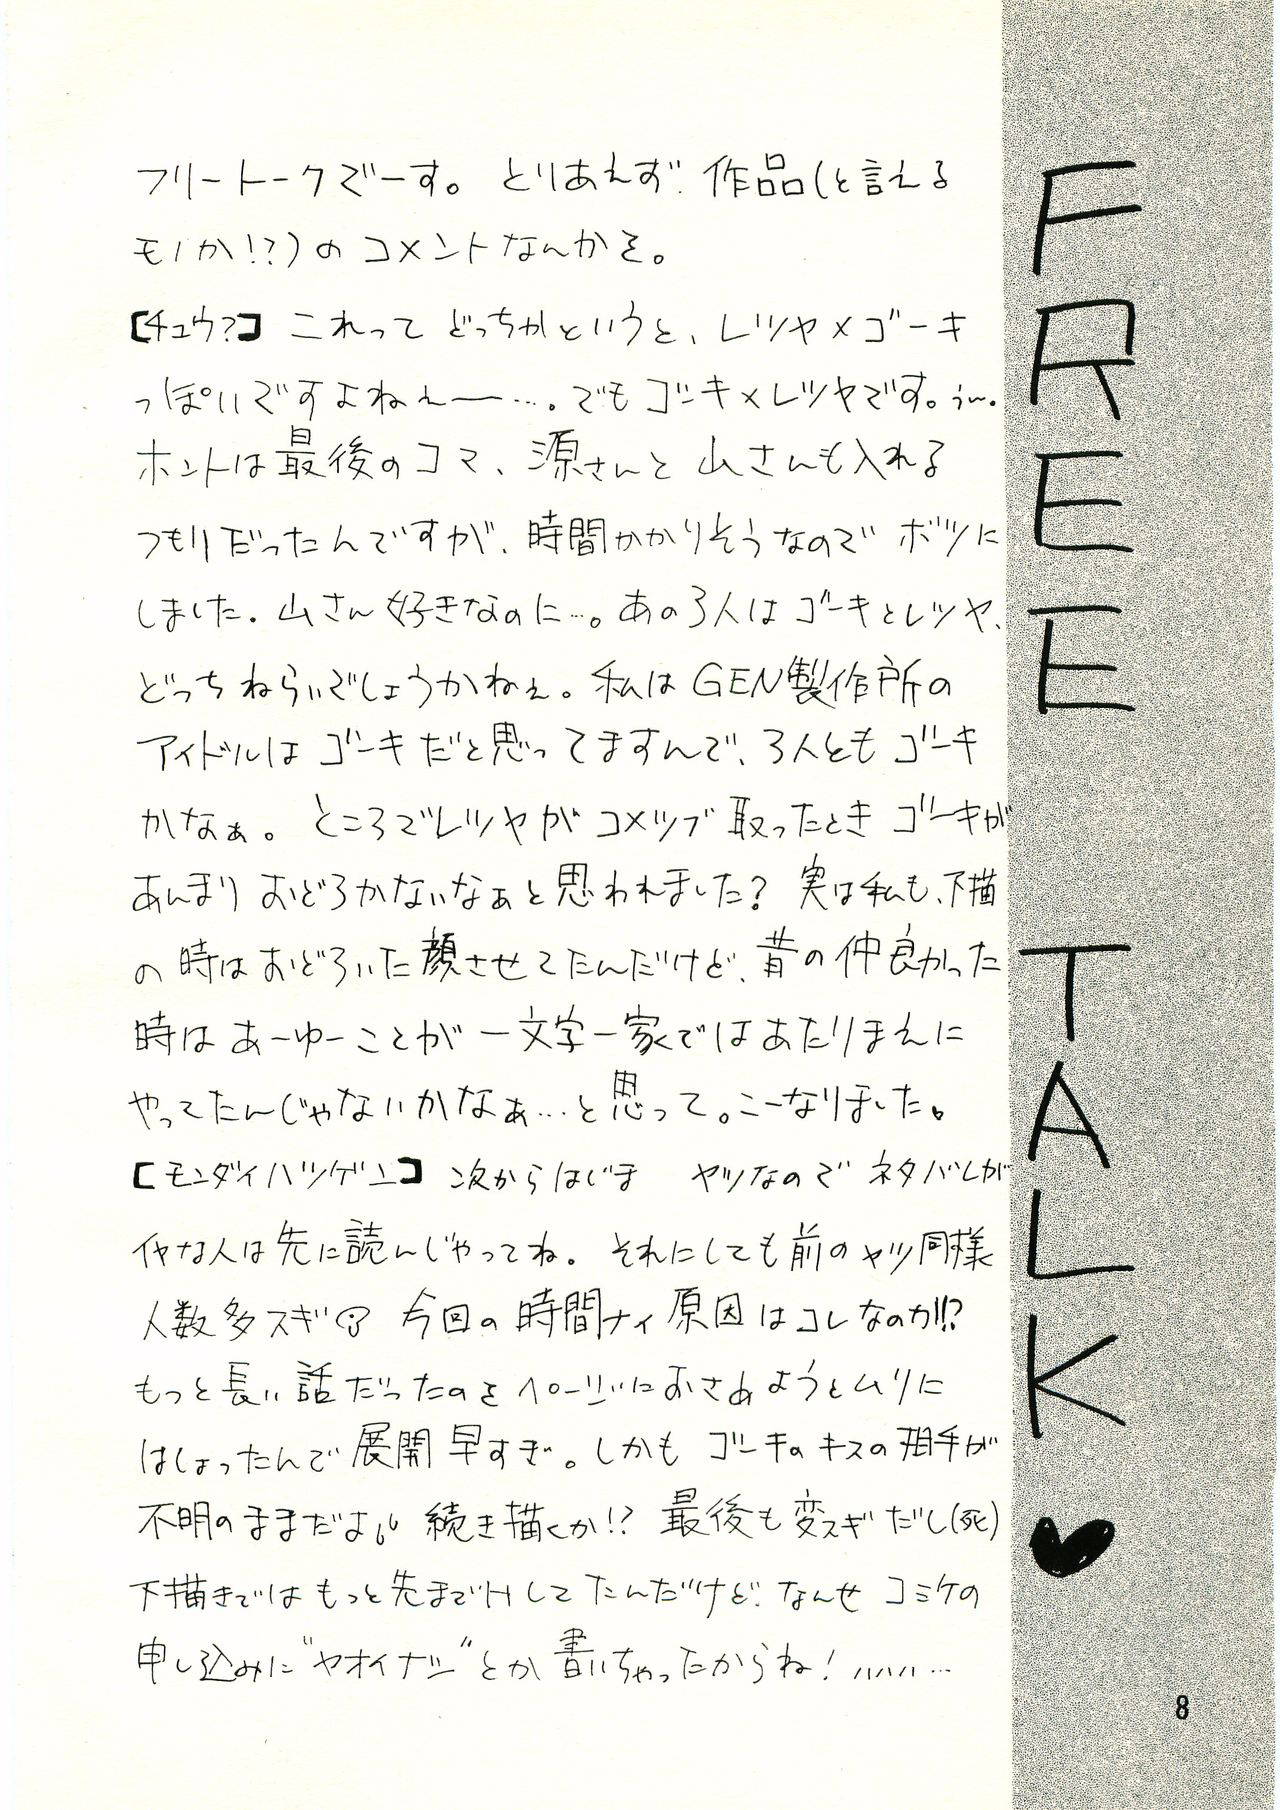 フリートークでーす。とりあえず、作品(と言える
モノか!?)のコメントなんかを。
【チュウ?】 これってどっちかというと、レツヤ×ゴーキ
っぽいですよねぇー…。でもゴーキ×レツヤです。う〜。
ホントは最後のコマ、源さんと山さんも入れる
つもりだったんですが、時間かかりそうなのでボツに
しました。山さん好きなのに…。あの3人はゴーキとレツヤ、
どっちねらいでしょうかねぇ。私はGEN製作所の
アイドルはゴーキだと思ってますんで、3人ともゴーキ
かなぁ。ところでレツヤがコメツブ取ったときゴーキが
あんまりおどろかないなぁと思われました?実は私も、下描
の時はおどろいた顔させてたんだけど、昔の仲良かった
時はあーゆーことが一文字一家ではあたりまえに
やってたんじゃないかなぁ…と思って。こーなりました。
【モンダイハツゲン】 次からはじま ヤツなのでネタバレが
イヤな人は先に読んじゃってね。それにしても前のヤツ同様
人数多スギ 今回の時間ナイ原因はコレなのか!!?
もっと長い話だったのをページにおさめようとムリに
はしょったんで展開早すぎ。しかもゴーキのキスの相手が
不明のままだよ。続き描くか!?最後も変スギだし(死)
下描きではもっと先までHしてたんだけど、なんせコミケの
申し込みに"ヤオイナシ"とか書いちゃったからね!ハハハ…
FREE TALK ♥
8